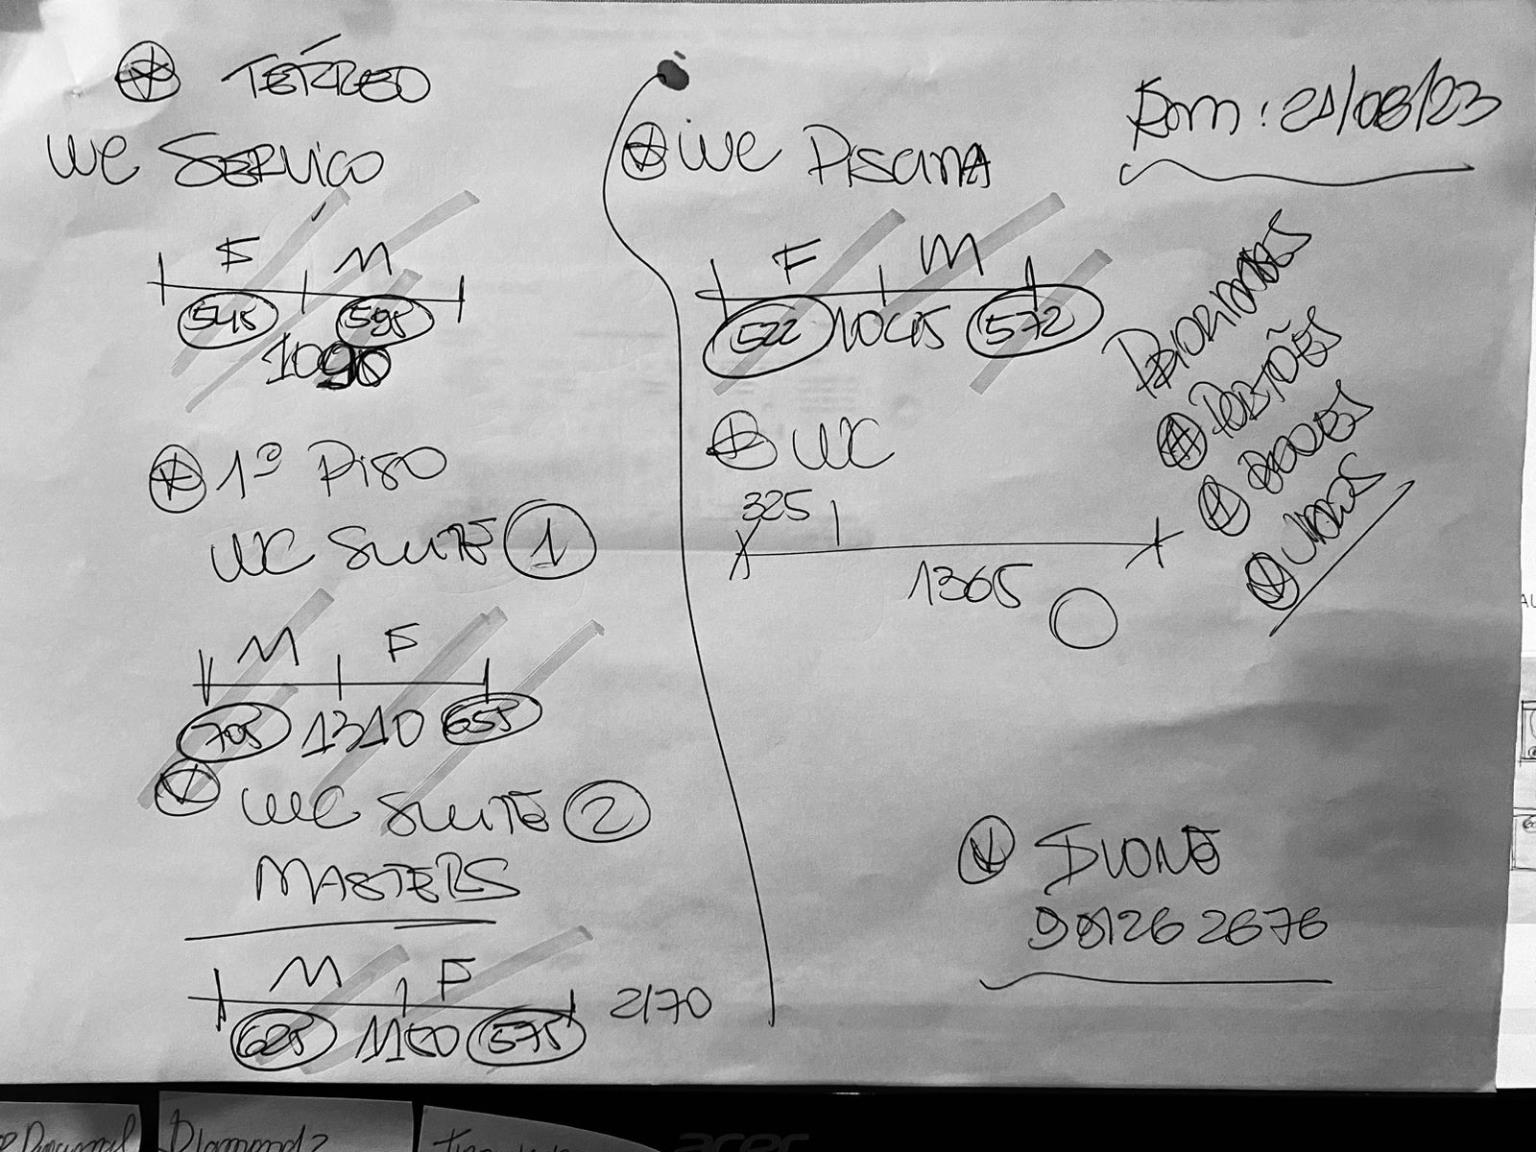 TÉRREO
WC SERVICO
F M
545 595
1090
1º PISO
WC SUITE 1
M F
705 1310 655
WC SUITE 2
MASTERS
M F
625 1150 575 2170
WC PISCINA
F M
522 1045 572
WC
325
1365
Dom: 21/08/23
PRIORIDADES
PORTÕES
VIDROS
981262676
Diamond
acer